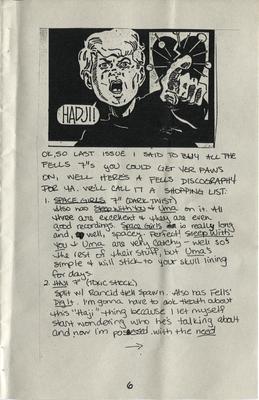 HADJI!
OK, SO LAST ISSUE I SAID TO BUY ALL THE
FELLS 7"s YOU COULD GET YER PAWS
ON, WELL HERE'S A FELLS DISCOGRAPHY
FOR YA. WE'LL CALL IT A SHOPPING LIST:
1. SPACE GIRLS 7" (DARK TWIST)
Also has Sleep With You & Uma on it. All
three are excellent & they are even
good recordings. Space Girls is really long
and, well, spacey. Perfect! Sleep With
You & Uma are very catchy - well so's
the rest of their stuff, but Uma's
simple & will stick to your skull lining
for days.
2. HAJI 7" (TOXIC SHOCK)
Split w/ Rancid Hell Spawn. Also has Fells'
Dig It. I'm gonna have to ask Heath about
this "Haji" thing because I let myself
start wondering who he's talking about
and now I'm possessed with the need
→
6